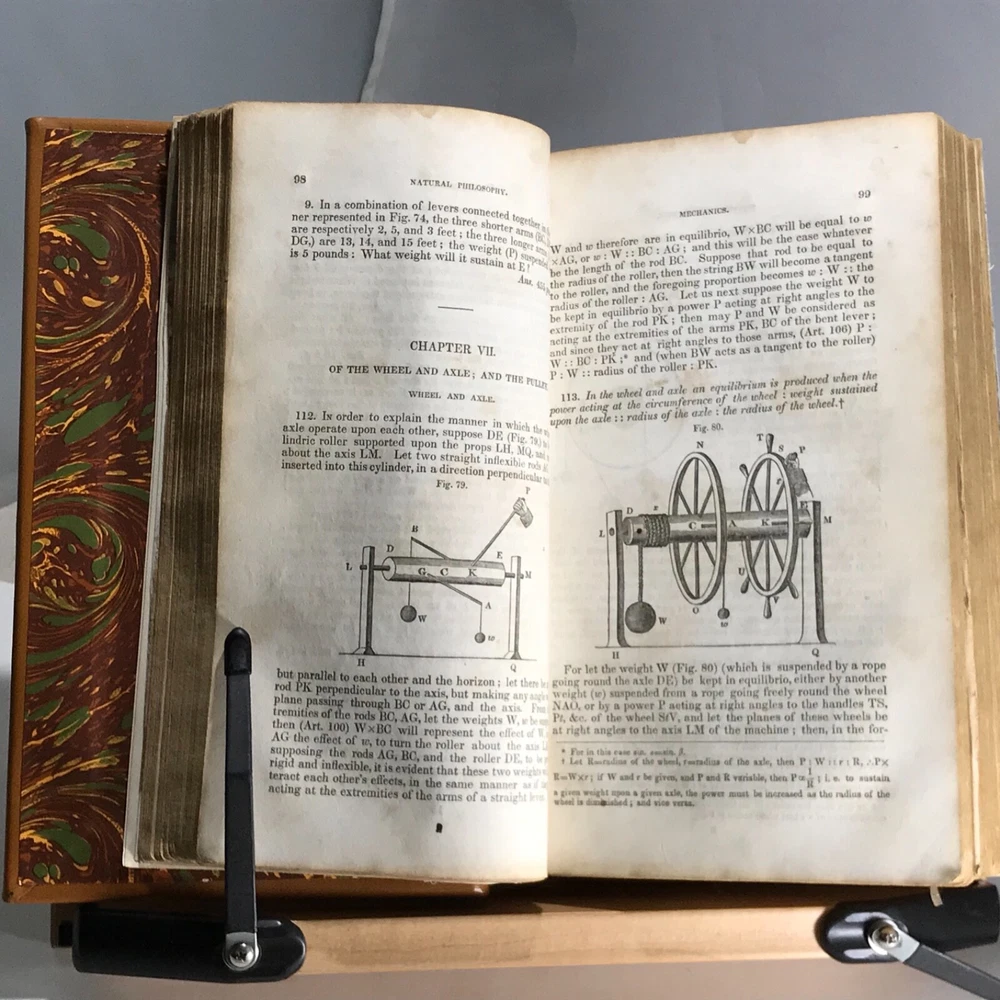 98
NATURAL PHILOSOPHY.
9. In a combination of levers connected together
ner represented in Fig. 74, the three shorter arms (BC,
are respectively 2, 5, and 3 feet; the three longer arms
DG,) are 13, 14, and 15 feet; the weight (P) suspended
is 5 pounds: What weight will it sustain at E?
Ans.
CHAPTER VII.
OF THE WHEEL AND AXLE; AND THE PULLEY
WHEEL AND AXLE.
112. In order to explain the manner in which the
axle operate upon each other, suppose DE (Fig. 79.)
lindric roller supported upon the props LH, MQ, and
about the axis LM. Let two straight inflexible rods
inserted into this cylinder, in a direction perpendicular
Fig. 79.
P
B
D
E
L
G C K
M
A
W
w
H
Q
but parallel to each other and the horizon; let there
rod PK perpendicular to the axis, but making any angle
plane passing through BC or AG, and the axis. From
tremities of the rods BC, AG, let the weights W, w be
then (Art. 100) W×BC will represent the effect of W
AG the effect of w, to turn the roller about the axis
supposing the rods AG, BC, and the roller DE, to be
rigid and inflexible, it is evident that these two weights
teract each other's effects, in the same manner as if
acting at the extremities of the arms of a straight
99
MECHANICS.
W and w therefore are in equilibrio, W×BC will be equal to w
×AG, or w : W :: BC : AG; and this will be the case whatever
be the length of the rod BC. Suppose that rod to be equal to
the radius of the roller, then the string BW will become a tangent
to the roller, and the foregoing proportion becomes w : W :: the
radius of the roller : AG. Let us next suppose the weight W to
be kept in equilibrio by a power P acting at right angles to the
extremity of the rod PK; then may P and W be considered as
acting at the extremities of the arms PK, BC of the bent lever;
and since they act at right angles to those arms, (Art. 106) P :
W :: BC : PK;* and (when BW acts as a tangent to the roller)
P : W :: radius of the roller : PK.
113. In the wheel and axle an equilibrium is produced when the
power acting at the circumference of the wheel : weight sustained
upon the axle :: radius of the axle : the radius of the wheel.†
Fig. 80.
N
T
S
P
L
D
C
A
K
E
M
U
V
O
W
w
H
Q
For let the weight W (Fig. 80) (which is suspended by a rope
going round the axle DE) be kept in equilibrio, either by another
weight (w) suspended from a rope going freely round the wheel
NAO, or by a power P acting at right angles to the handles TS,
Pt, &c. of the wheel StV, and let the planes of these wheels be
at right angles to the axis LM of the machine; then, in the for-
* For in this case
† Let R=radius of the wheel, r=radius of the axle, then P : W :: r : R, ∴P×
R=W×r; if W and r be given, and P and R variable, then P = 1/R; i. e. to sustain
a given weight upon a given axle, the power must be increased as the radius of the
wheel is diminished; and vice versa.